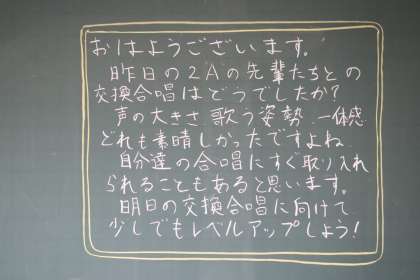 おはようございます。
昨日の2Aの先輩たちとの
交換合唱はどうでしたか？
声の大きさ 歌う姿勢 一体感
どれも素晴しかったですよね
自分達の合唱にすぐ取り入れ
られることもあると思います。
明日の交換合唱に向けて
少しでもレベルアップしよう！